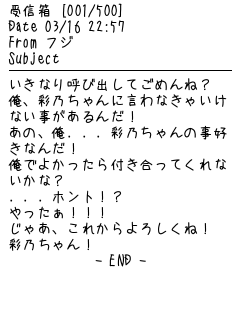 受信箱 [001/500]
Date 03/16 22:57
From フジ
Subject
いきなり呼び出してごめんね?
俺、彩乃ちゃんに言わなきゃいけ
ない事があるんだ!
あの、俺...彩乃ちゃんの事好
きなんだ!
俺でよかったら付き合ってくれな
いかな?
...ホント!?
やったぁ!!!
じゃあ、これからよろしくね!
彩乃ちゃん!
- END -